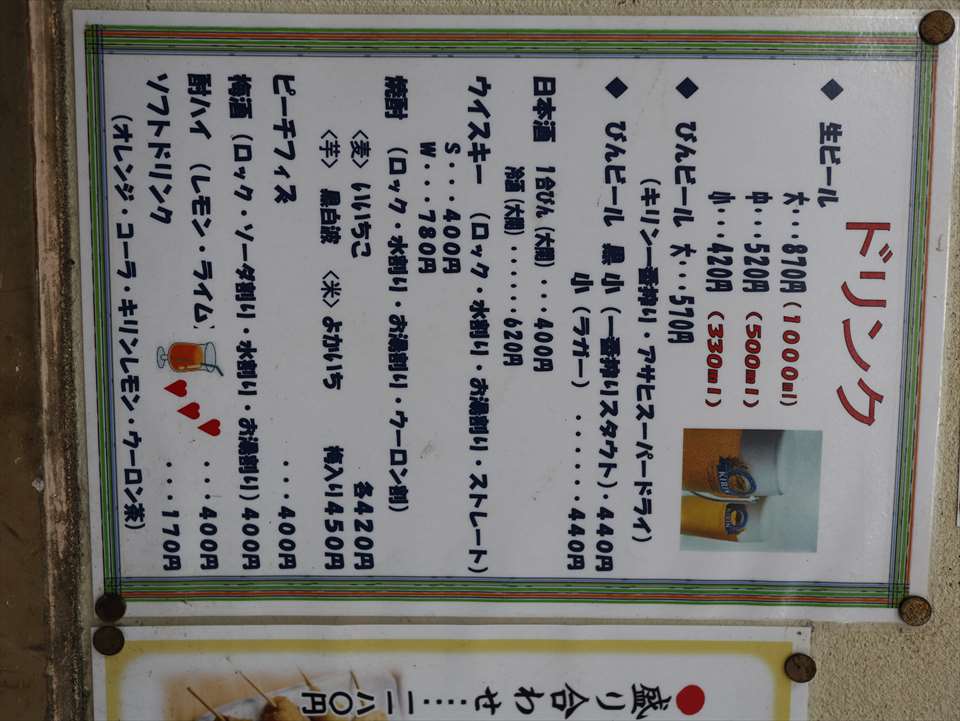 ドリンク
◆ 生ビール
大・・・870円(1000ml)
中・・・520円(500ml)
小・・・420円(330ml)
◆ びんビール 大・・・570円
(キリン一番搾り・アサヒスーパードライ)
◆ びんビール 黒 小(一番搾りスタウト)・440円
小(ラガー)・・・・・・・440円
日本酒 1合びん(大関)・・・400円
冷酒(大関)・・・・・・620円
ウイスキー (ロック・水割り・お湯割り・ストレート)
S・・・400円
W・・・780円
焼酎 (ロック・水割り・お湯割り・ウーロン割)
<麦> いいちこ 各420円
<芋> 黒白波 <米>よかいち 梅入り450円
ピーチフィズ ・・・400円
梅酒(ロック・ソーダ割り・水割り・お湯割り)400円
酎ハイ (レモン・ライム) ・・・400円
ソフトドリンク ・・・・170円
(オレンジ・コーラ・キリンレモン・ウーロン茶)
KIRIN
●盛り合わせ……一一八〇円